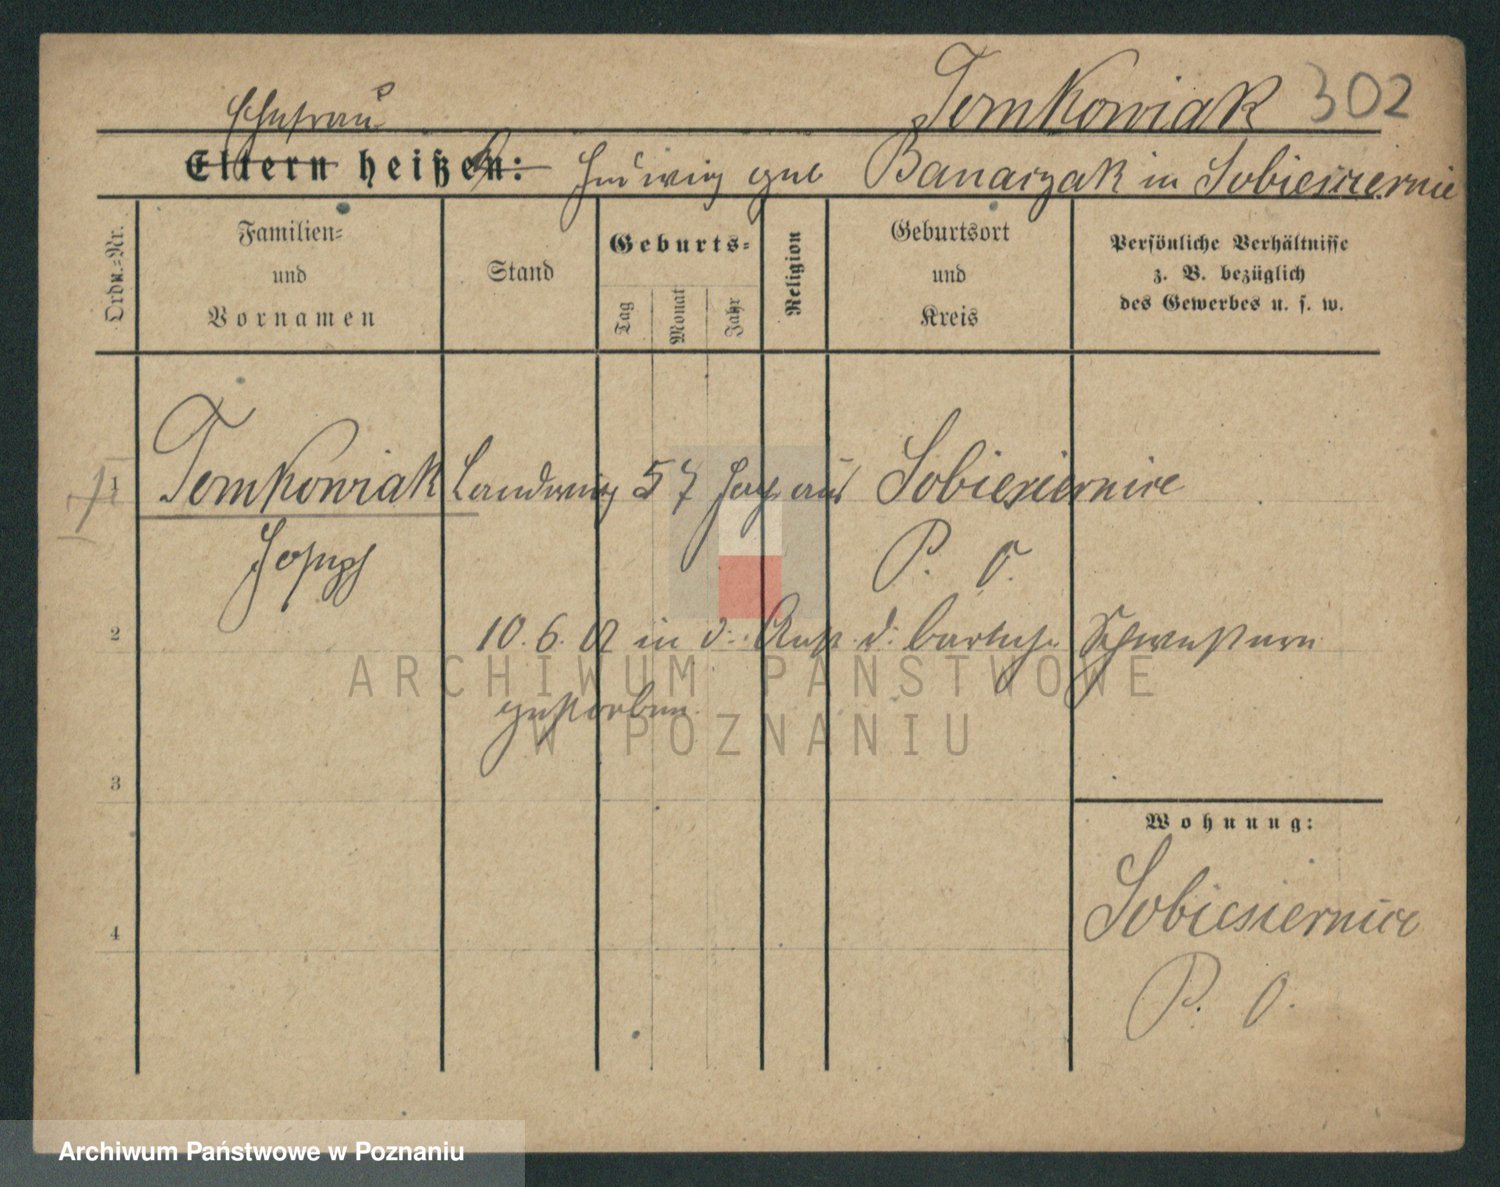 Tomkowiak 302
Ehefrau
Eltern heißen: Hedwig geb Banaszak in Sobiesiernie
Ordn.-Nr.
Familien-
und
Vornamen
Stand
Geburts-
Tag
Monat
Jahr
Religion
Geburtsort
und
Kreis
Persönliche Verhältnisse
z. B. bezüglich
des Gewerbes u. s. w.
1 Tomkowiak Landwirt 57 Jahr aus Sobiesiernie
Joseph P. O.
2 10. 6. 02 in d. Anst. d. barmh. Schwestern
gestorben
3
Wohnung:
Sobiesiernie
4
P. O.
ARCHIWUM PAŃSTWOWE
W POZNANIU
Archiwum Państwowe w Poznaniu